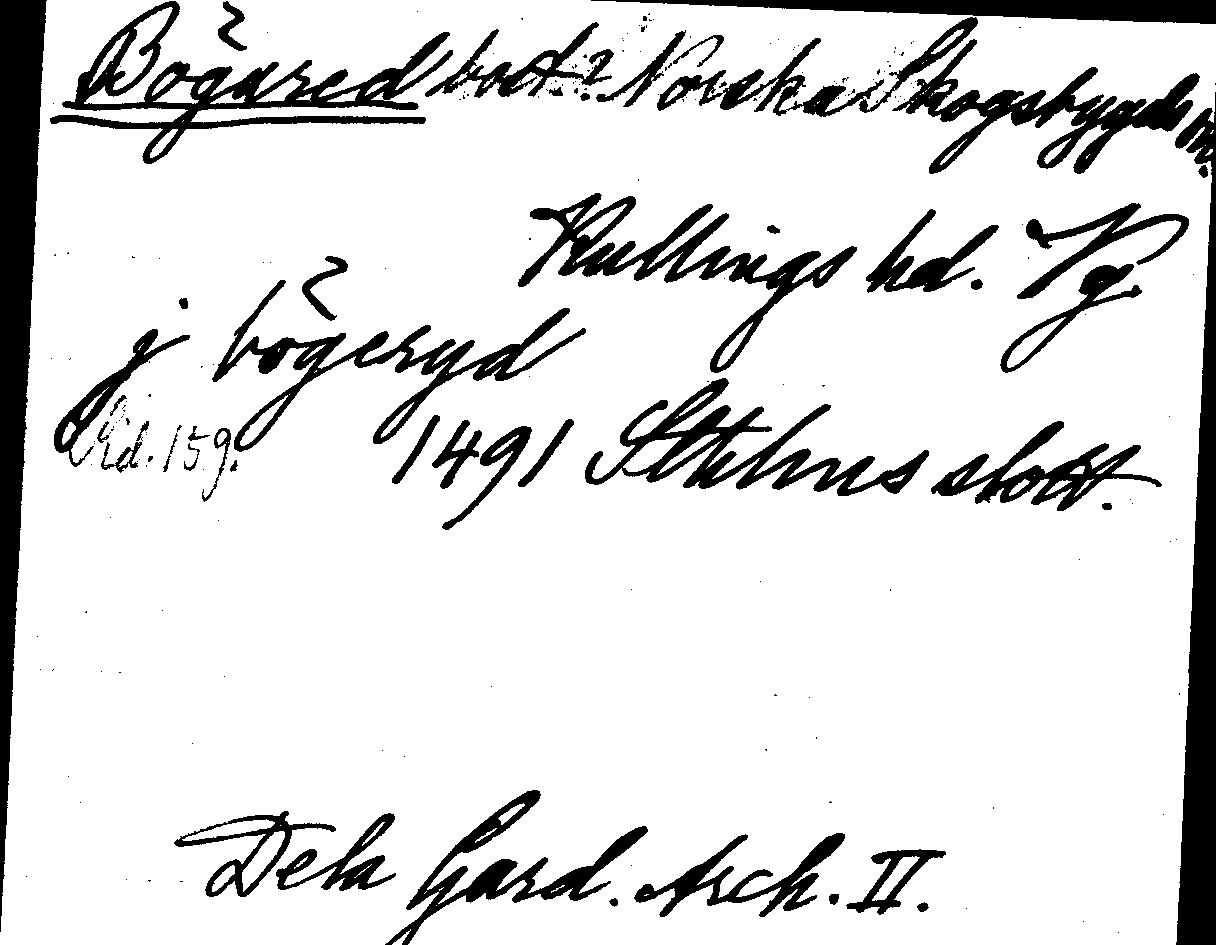 Bögared bort? Norska Skogsbygds sn.
Kullings hd. Vg.
j bögeryd
Sid. 159. 1491 Sthlms slott.
Dela Gard. Arch. II.